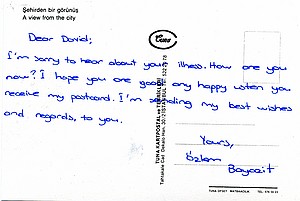 Şehirden bir görünüş
A view from the city
Dear David;
I'm sorry to hear about your illness. How are you
now? I hope you are good any happy wsten you
receive my postcard. I'm sending my best wishes
and regards, to you.
Yours,
Özlem
Bayazit
Tuna
TUNA KARTPOSTAL ve
TUNA OFSET MATBAACILIK